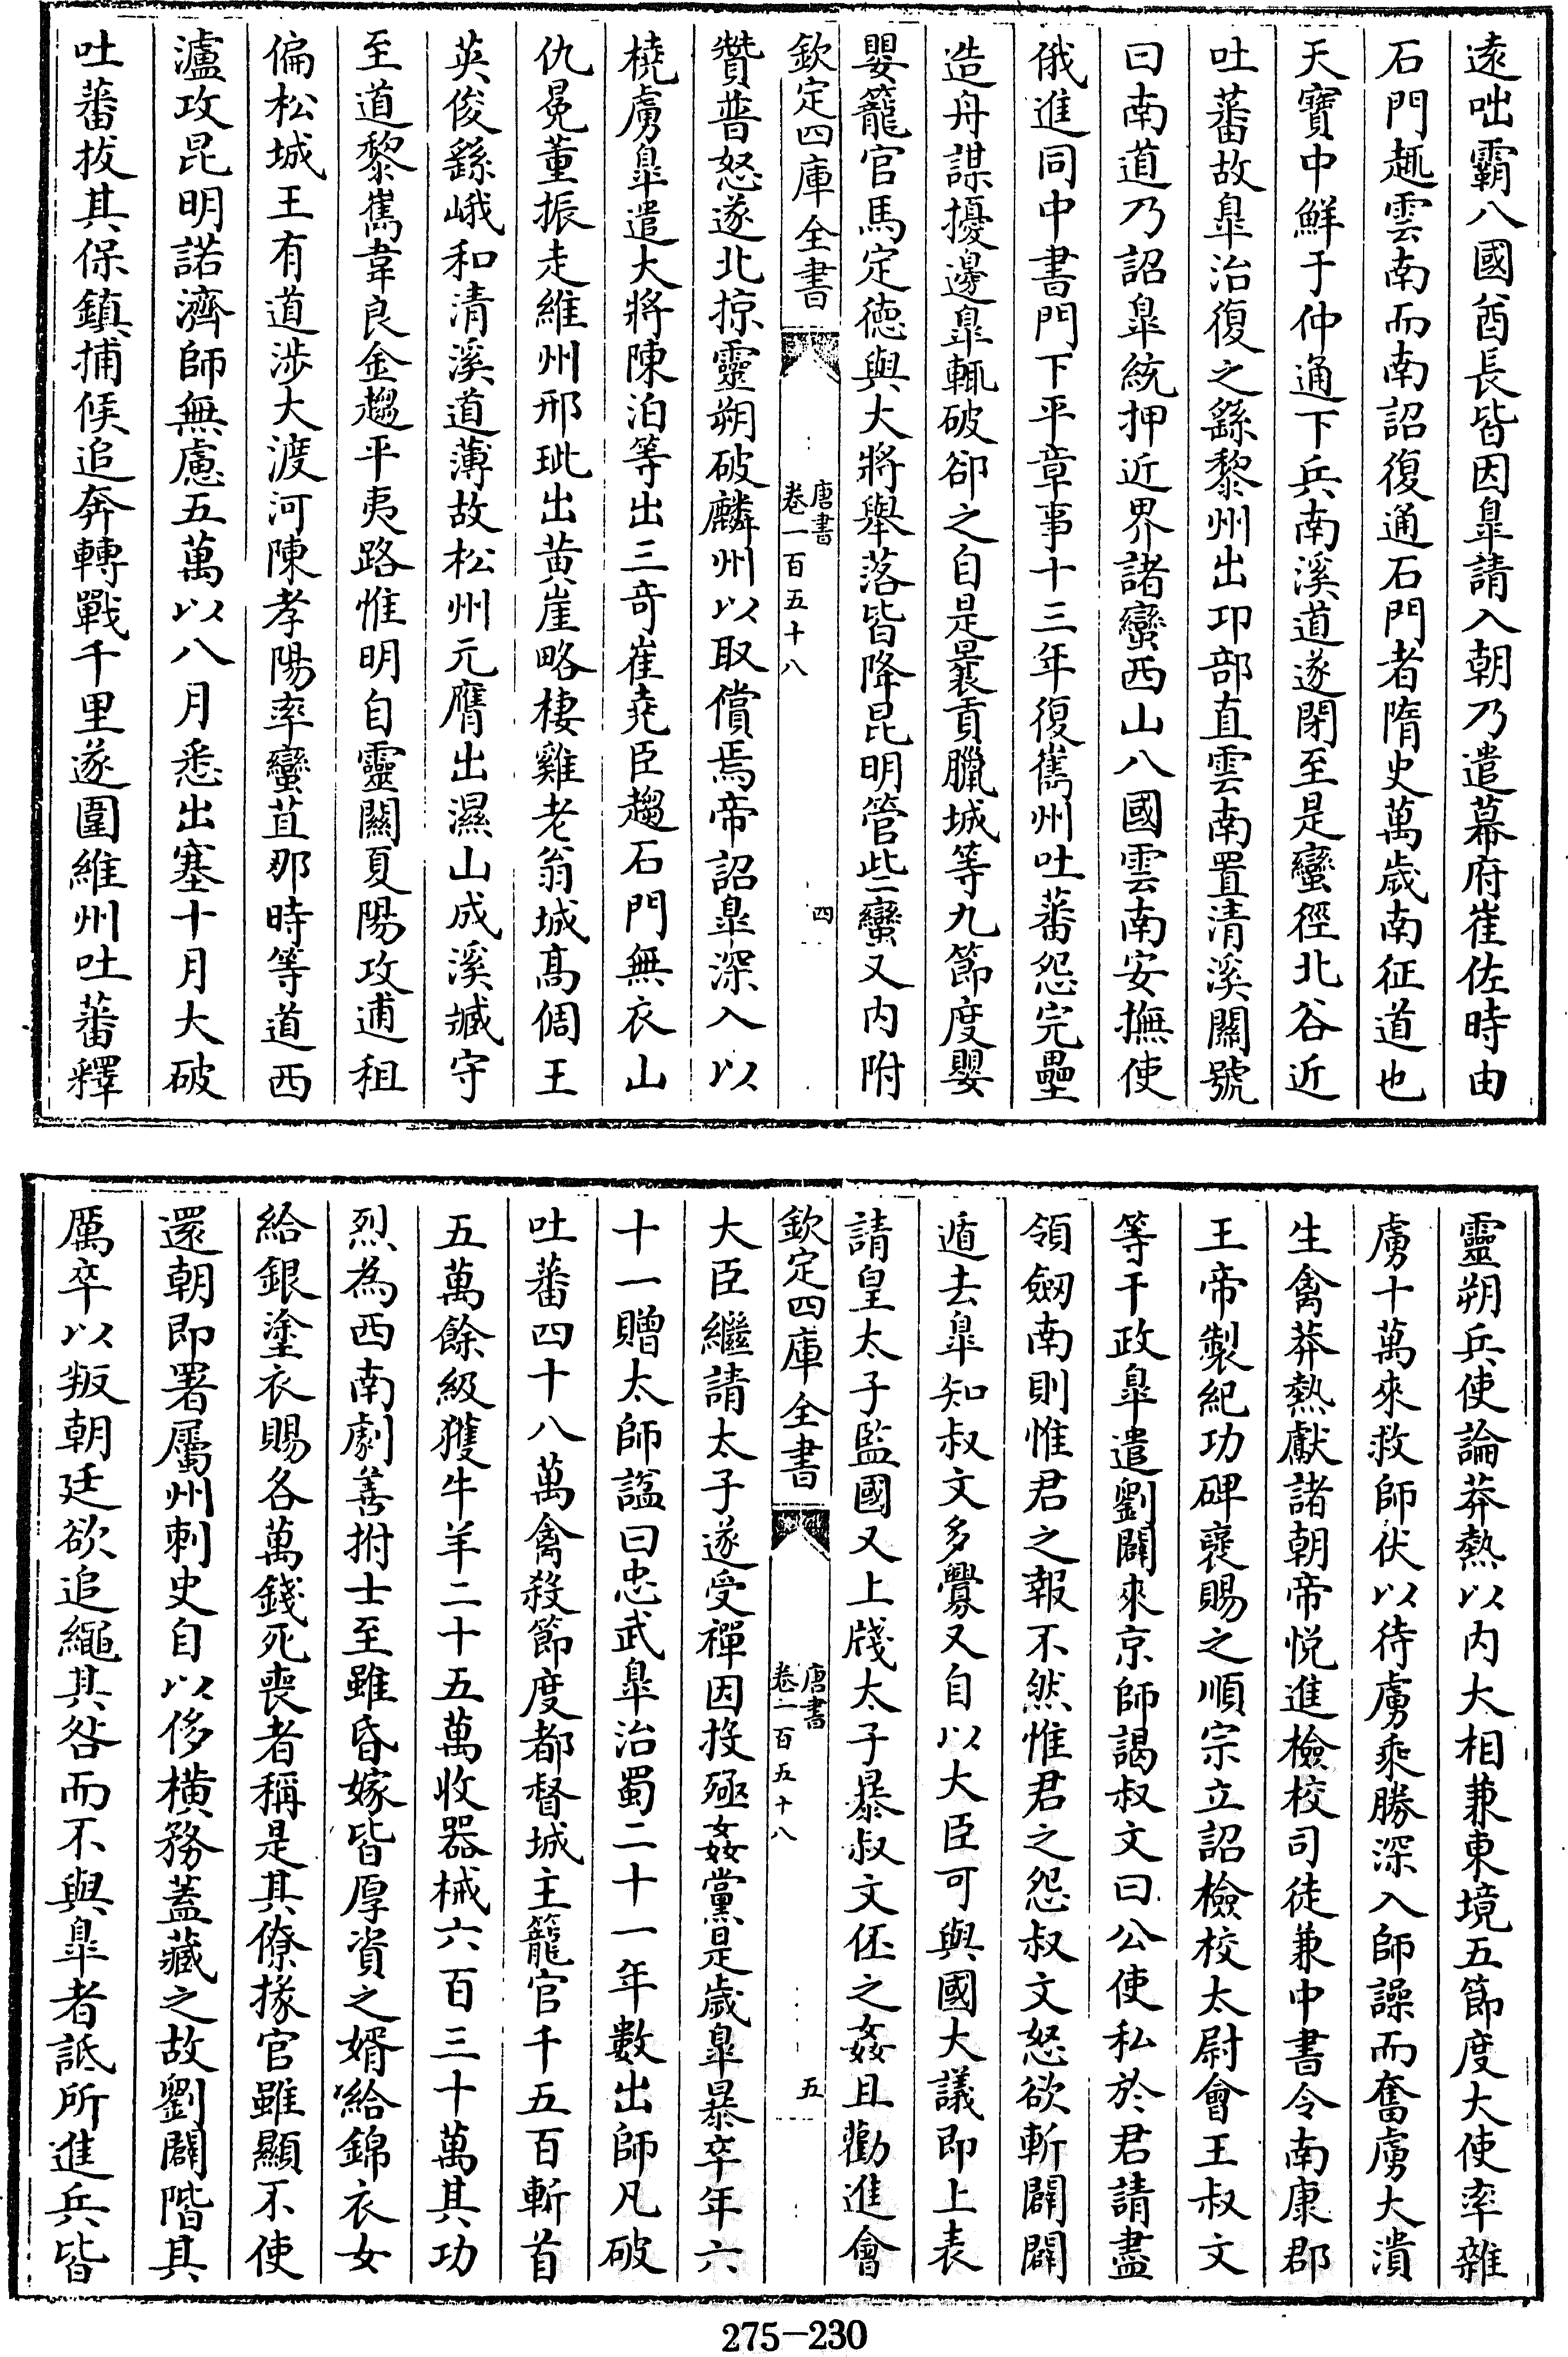 遠咄霸八國酋長皆因臯請入朝乃遣幕府崔佐時由
石門趣雲南而南詔復通石門者隋史萬歲南征道也
天寶中鮮于仲通下兵南溪道遂閉至是蠻徑北谷近
吐蕃故臯治復之繇黎州出邛部直雲南置清溪關號
曰南道乃詔臯統押近界諸蠻西山八國雲南安撫使
俄進同中書門下平章事十三年復嶲州吐蕃怨完壘
造舟謀擾邊臯輒破卻之自是曩貢臘城等九節度嬰
嬰籠官馬定徳與大將舉落皆降昆明管些蠻又內附
欽定四庫全書
唐書
卷一百五十八
四
贊普怒遂北掠靈朔破麟州以取償焉帝詔臯深入以
橈虜臯遣大將陳泊等出三奇崔堯臣趨石門無衣山
仇冕董振走維州邢玼出黃崖略棲雞老翁城高倜王
英俊繇峨和清溪道薄故松州元膺出濕山成溪臧守
至道黎嶲韋良金趨平夷路惟明自靈關夏陽攻逋租
偏松城王有道涉大渡河陳孝陽率蠻苴那時等道西
瀘攻昆明諾濟師無慮五萬以八月悉出塞十月大破
吐蕃拔其保鎮捕候追奔轉戰千里遂圍維州吐蕃釋
靈朔兵使論莽熱以內大相兼東境五節度大使率雜
虜十萬來救師伏以待虜乘勝深入師譟而奮虜大潰
生禽莽熱獻諸朝帝悅進檢校司徒兼中書令南康郡
王帝製紀功碑褒賜之順宗立詔檢校太尉會王叔文
等干政臯遣劉闢來京師謁叔文曰公使私於君請盡
領劒南則惟君之報不然惟君之怨叔文怒欲斬闢闢
遁去臯知叔文多釁又自以大臣可與國大議即上表
請皇太子監國又上牋太子暴叔文伾之姦且勸進會
欽定四庫全書
唐書
卷一百五十八
五
大臣繼請太子遂受禪因投殛姦黨是歲臯暴卒年六
十一贈太師諡曰忠武臯治蜀二十一年數出師凡破
吐蕃四十八萬禽殺節度都督城主籠官千五百斬首
五萬餘級獲牛羊二十五萬收器械六百三十萬其功
烈為西南劇善拊士至雖昏嫁皆厚資之婿給錦衣女
給銀塗衣賜各萬錢死喪者稱是其僚掾官雖顯不使
還朝即署屬州刺史自以侈橫務蓋藏之故劉闢階其
厲卒以叛朝廷欲追繩其咎而不與臯者詆所進兵皆
275-230